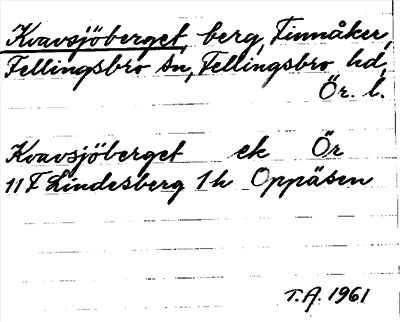 Kvavsjöberget, berg, Finnåker,
Fellingsbro sn, Fellingsbro hd,
Ör. l.
Kvavsjöberget ek Ör
11 F Lindesberg 1h Oppåsen
T.A. 1961